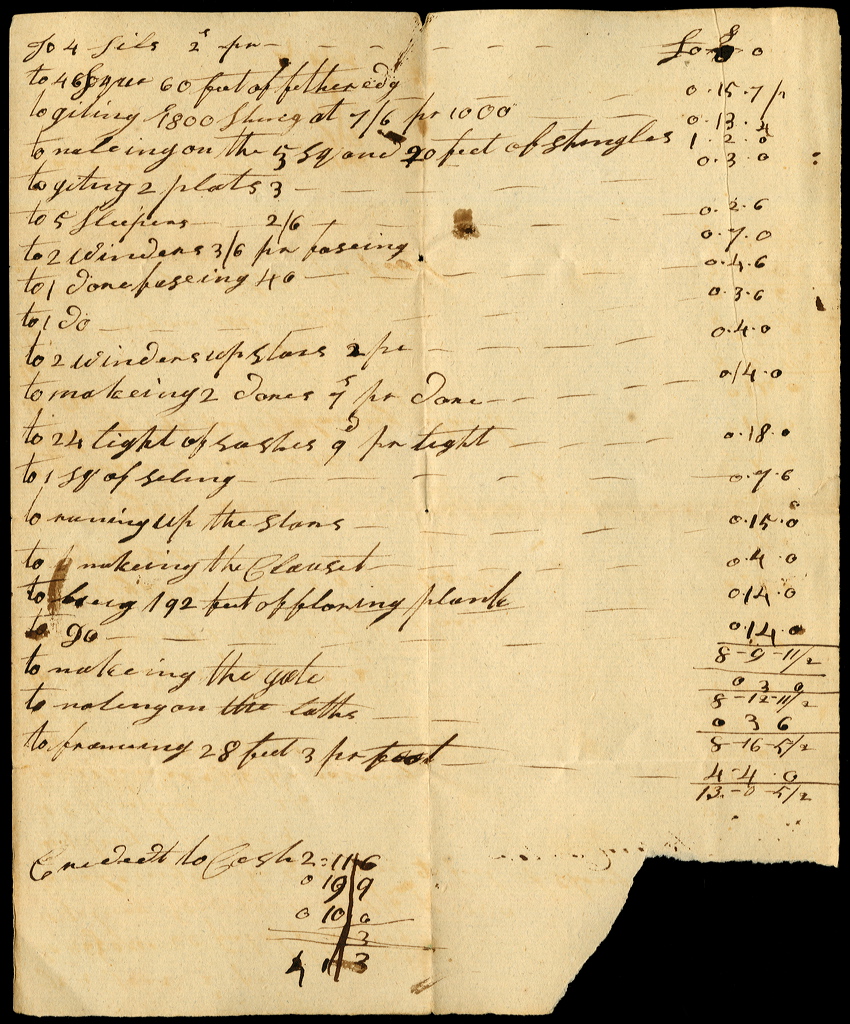 To 4 Sils 2s pr — £0 8 0
to 46 Squr 60 feet of fetheredg 0.15.7/2
to giting 1800 Shing at 7/6 pr 1000 0.13.4
to naleing on the 5 sq and 20 feet of shingles 1.2.0
to giting 2 plats 3 — 0.3.0
to 5 Sleepers — 2/6 0.2.6
to 2 winders 3/6 pr faseing 0.7.0
to 1 Dore faseing 46 — 0.4.6
to 1 Do — 0.3.6
to 2 winders up stars 2 pr 0.4.0
to makeing 2 Dores 7s pr Dore — 0/4.0
to 24 light of sashes 9d pr light — 0.18.0
to 1 sq of seling — 0.7.6
to runing up the stars — 0.15.0
to makeing the Clauset — 0.4.0
to 192 feet of floring plank 0.14.0
to Do — 0.14.0
8-9-11/2
to makeing the gate 0 3 0
8-12-11/2
to naling on the laths — 0 3 6
8-16-5/2
to framing 28 feet 3 pr foot — 4-4.0
13-0-5/2
Credect to Cash 2:11 6
0 19 9
0 10 0
3
4 1 3